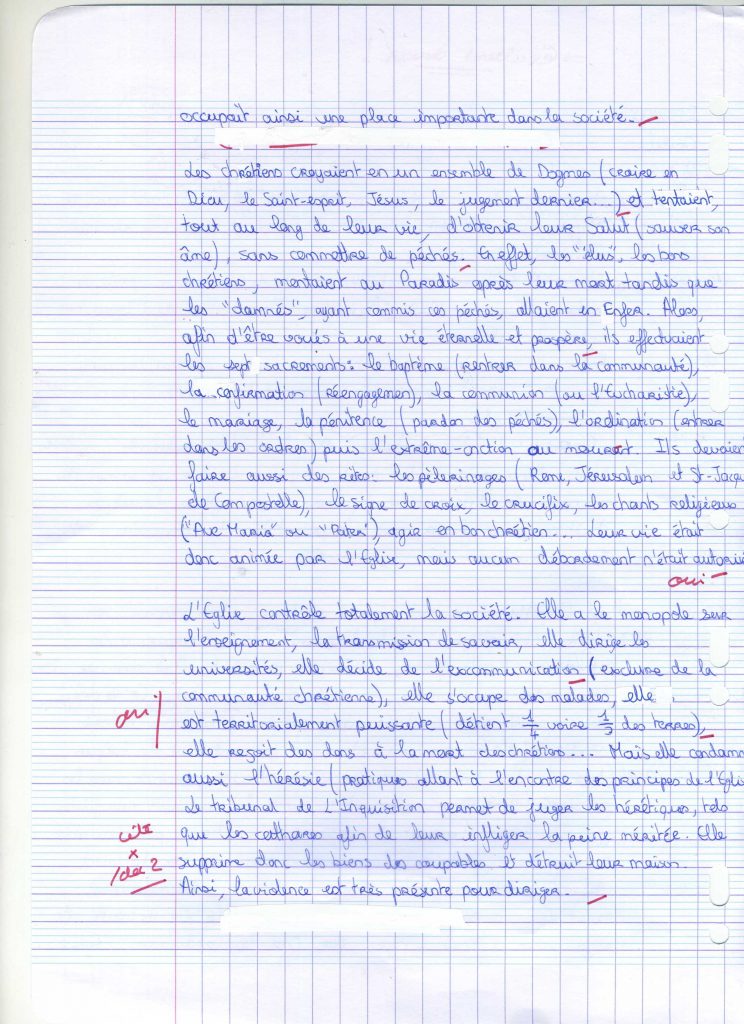 occupait ainsi une place importante dans la société.
Les chrétiens croyaient en un ensemble de Dogmes (croire en
Dieu, le Saint-esprit, Jésus, le jugement dernier...) et tentaient,
tout au long de leur vie, d'obtenir leur Salut (sauver son
âme), sans commettre de péchés. En effet, les "élus", les bons
chrétiens, montaient au Paradis après leur mort tandis que
les "damnés", ayant commis ces péchés, allaient en Enfer. Alors,
afin d'être voués à une vie éternelle et prospère, ils effectuaient
les sept sacrements: le baptème (rentrer dans la communauté),
la confirmation (réengagement), la communion (ou l'Eucharistie),
le mariage, la pénitence (pardon des péchés), l'ordination (entrer
dans les ordres) puis l'extrême-onction au mourant. Ils devaien
faire aussi des rites: les pèlerinages (Rome, Jérusalem et St-Jacqu
de Compostelle), le signe de croix, le crucifix, les chants religieux
("Ave Maria" ou "Pater"), agir en bon chrétien... Leur vie était
donc animée par l'Eglise, mais aucun débordement n'était autorisé
oui
L'Eglise contrôle totalement la société. Elle a le monopole sur
l'enseignement, la transmission de savoir, elle dirige les
universités, elle décide de l'excommunication (exclure de la
communauté chrétienne), elle s'ocape des malades, elle
oui
est territorialement puissante (détient 1/4 voire 1/3 des terres),
elle reçoit des dons à la mort des chrétiens... Mais elle condamn
aussi l'hérésie (pratiques allant à l'encontre des principes de l'Eglis
Le tribunal de L'Inquisition permet de juger les hérétiques, tels
que les cathares afin de leur infliger la peine méritée. Elle
supprime donc les biens des coupables et détruit leur maison.
Ainsi, la violence est très présente pour diriger.